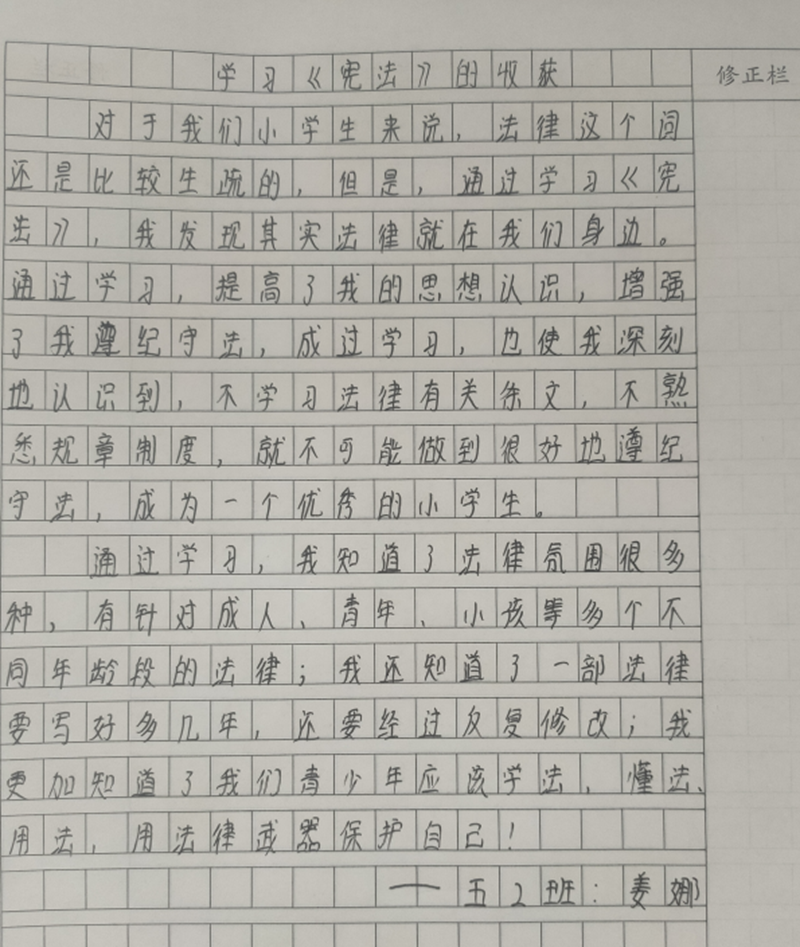 学习《宪法》的收获
修正栏
对于我们小学生来说，法律这个词
还是比较生疏的，但是，通过学习《宪
法》，我发现其实法律就在我们身边。
通过学习，提高了我的思想认识，增强
了我遵纪守法，成过学习，也使我深刻
地认识到，不学习法律有关条文，不熟
悉规章制度，就不可能做到很好地遵纪
守法，成为一个优秀的小学生。
通过学习，我知道了法律氛围很多
种，有针对成人、青年、小孩等多个不
同年龄段的法律；我还知道了一部法律
要写好多几年，还要经过反复修改；我
更加知道了我们青少年应该学法、懂法、
用法，用法律武器保护自己！
——五2班：姜娜